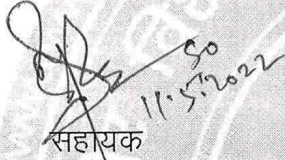 SO
11.5.2022
सहायक